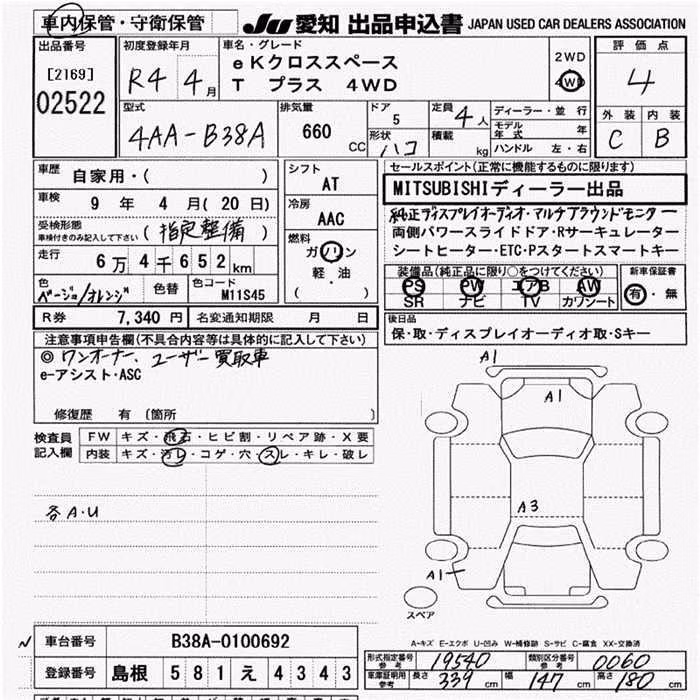 車内保管・守衛保管
JU 愛知 出品申込書 JAPAN USED CAR DEALERS ASSOCIATION
出品番号
[2169]
02522
初度登録年月
R4 4月
車名・グレード
eKクロススペース
T プラス 4WD
2WD
4WD
評価点
4
外装 内装
C B
型式
4AA-B38A
排気量
660 CC
ドア
5
形状
ハコ
定員 4人
積載 kg
ディーラー・並行
モデル年式 年
ハンドル 左・右
車歴 自家用・( )
車検 9年 4月(20日)
受検形態
車検付きのみ記入して下さい (指定整備)
走行 6万4千652km
色 ベージュ/オレンジ
色替
色コード
M11S45
シフト
AT
冷房
AAC
燃料
ガソリン
軽・油
( )
セールスポイント(正常に機能するものに限ります)
MITSUBISHIディーラー出品
純正ディスプレイオーディオ・マルチアラウンドモニター
両側パワースライドドア・Rサーキュレーター
シートヒーター・ETC・Pスタートスマートキー
装備品(純正品に限り○をつけてください)
PS PW エアB AW
SR ナビ TV カワシート
新車保証書
有・無
R券 7,340円 名変通知期限 月 日
後日品
保・取・ディスプレイオーディオ取・Sキー
注意事項申告欄(不具合内容等は具体的に記入して下さい)
◎ワンオーナー、ユーザー買取車
e-アシスト・ASC
修復歴 有 〔箇所 〕
検査員記入欄
FW キズ・飛石・ヒビ割・リペア跡・X要
内装 キズ・汚レ・コゲ・穴・スレ・キレ・破レ
各A・U
A1
A1
A3
A1
スペア
A-キズ E-エクボ U-凹み W-補修跡 S-サビ C-腐食 XX-交換済
車台番号 B38A-0100692
登録番号 島根 581え4343
形式指定番号 参考 19540
類別区分番号 参考 0060
車庫証明用 参考 長さ 339cm 幅 147cm 高さ 180cm